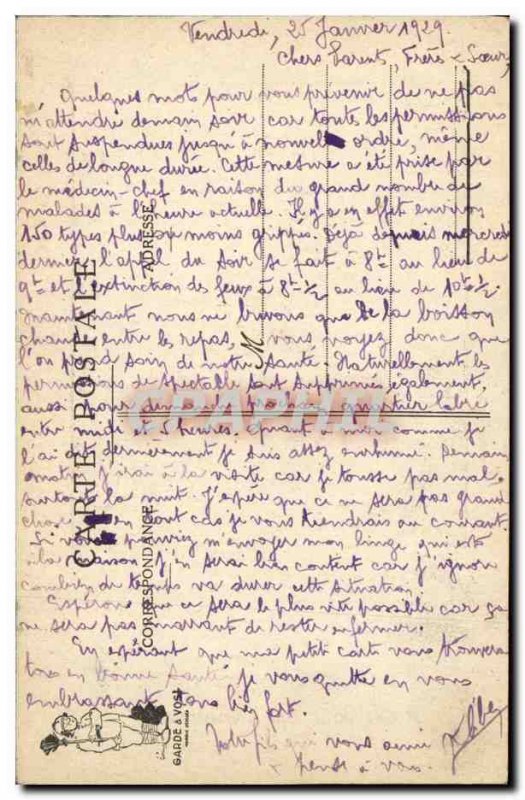 Vendredi, 25 Janvier 1929.
Chers Parents, Frères & Sœur,
Quelques mots pour vous prévenir de ne pas
m'attendre demain soir car toutes les permissions
sont suspendues jusqu'à nouvel ordre, même
celles de longue durée. Cette mesure a été prise par
le médecin-chef en raison du grand nombre de
malades à l'heure actuelle. Il y a en effet environ
150 types plus ou moins grippés. Déjà depuis mercredi
dernier l'appel du soir se fait à 8h au lieu de
9h et l'extinction des feux à 8h 1/2 au lieu de 10h 1/2.
maintenant nous ne buvons que de la boisson
chaude entre les repas, vous voyez donc que
l'on prend soin de notre santé. Naturellement les
permissions de spectacle sont supprimées également,
aussi pour demain quartier libre
entre midi et 5 heures. Quant à moi comme je
l'ai dit dernièrement je suis assez enrhumé. Demain
matin j'irai à la visite car je tousse pas mal
surtout la nuit. J'espère que ce ne sera pas grand
chose en tout cas je vous tiendrais au courant.
Si vous pouviez m'envoyer mon linge qui est
à la maison j'en serai bien content car j'ignore
combien de temps va durer cette situation.
Espérons que ce sera le plus vite possible car ça
ne sera pas marrant de rester enfermer.
En espérant que ma petite carte vous trouvera
tous en bonne santé je vous quitte en vous
embrassant tous bien fort.
Votre fils qui vous aime
& pense à vous.
CARTE POSTALE
ADRESSE
CORRESPONDANCE
M
GARDE à VOS!
CPAPHIL